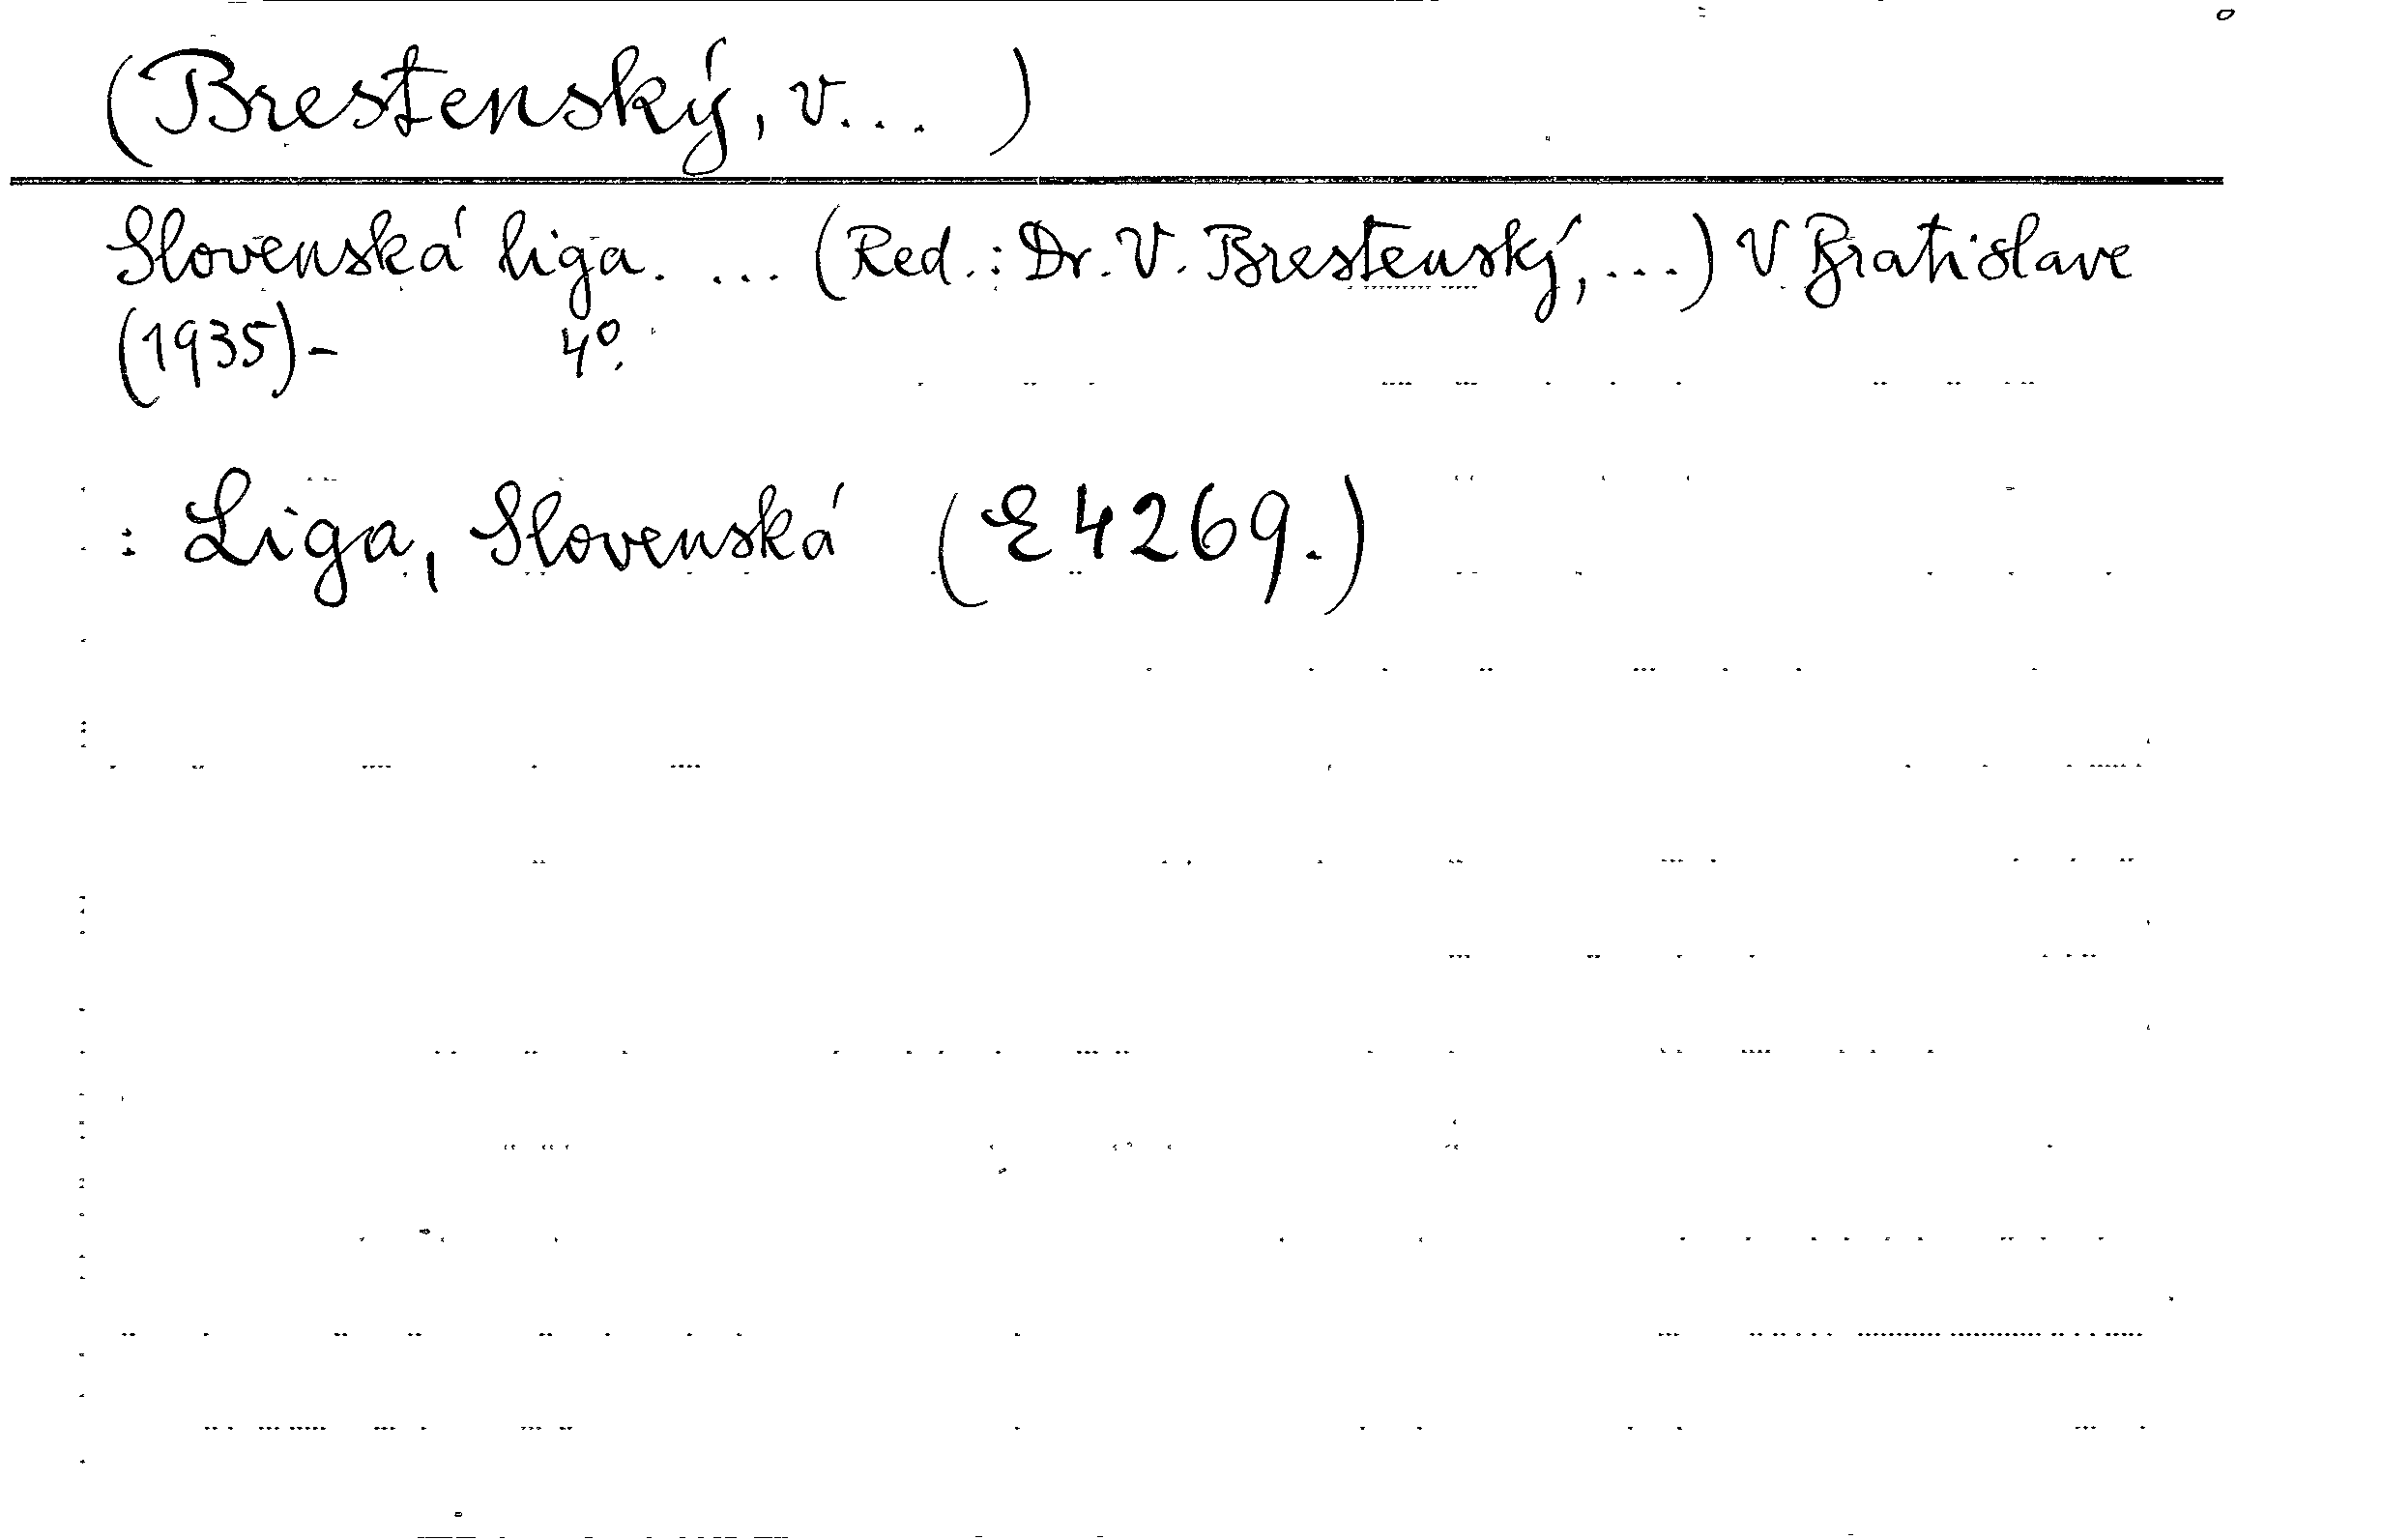 (Brestenský, V... )
Slovenská liga. ... (Red.: Dr. V. Brestenský, ...) V Bratislave
(1935)- 4°.
: Liga, Slovenská (E 4269.)